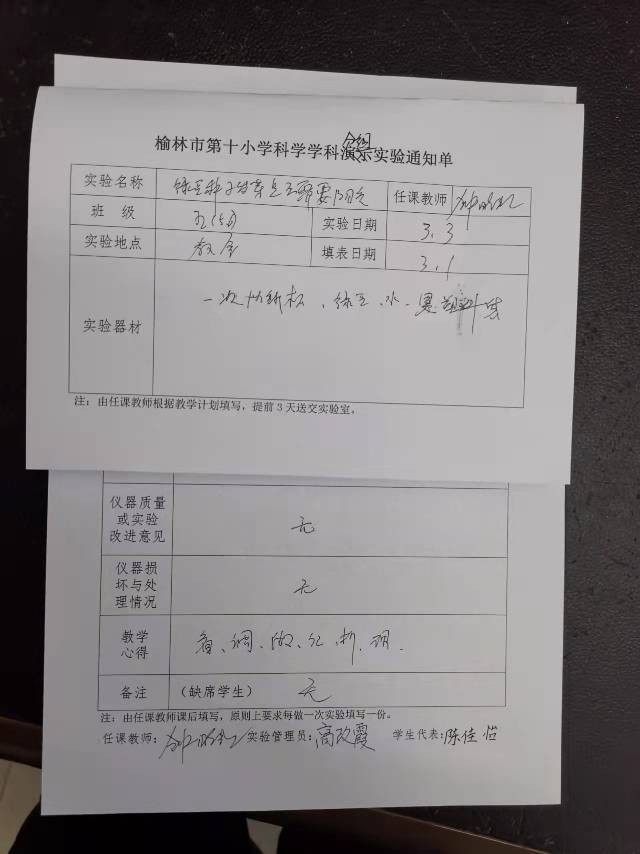 榆林市第十小学科学学科演示实验通知单
分组
实验名称 绿豆种子发芽是否需要阳光 任课教师
班 级 五(4) 实验日期 3.3
实验地点 教室 填表日期 3.1
实验器材 一次性纸杯、绿豆、水、黑塑料袋
注：由任课教师根据教学计划填写，提前3天送交实验室。
仪器质量
或实验
改进意见
无
仪器损
坏与处
理情况
无
教学
心得
备注 （缺席学生） 无
注：由任课教师课后填写，原则上要求每做一次实验填写一份。
任课教师： 实验管理员：高改霞 学生代表：陈佳怡